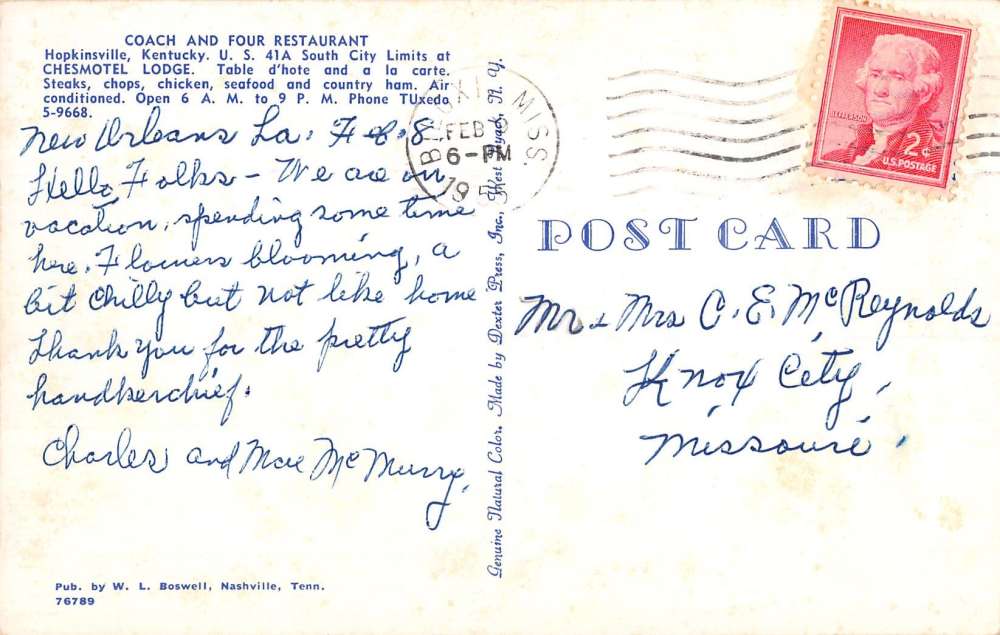 COACH AND FOUR RESTAURANT
Hopkinsville, Kentucky. U. S. 41A South City Limits at
CHESMOTEL LODGE. Table d'hote and a la carte.
Steaks, chops, chicken, seafood and country ham. Air
conditioned. Open 6 A. M. to 9 P. M. Phone TUxedo
5-9668.
New Orleans La. Feb. 8
Hello Folks - We are on
vacation, spending some time
here. Flowers blooming, a
bit chilly but not like home
Thank you for the pretty
handkerchief.
Charles and Mae McMurry.
Pub. by W. L. Boswell, Nashville, Tenn.
76789
Genuine Natural Color. Made by Dexter Press, Inc., West Nyack, N. Y.
MISS.
FEB
6-PM
195
JEFFERSON
2¢
U.S. POSTAGE
POST CARD
Mr & Mrs C. E. McReynolds
Knox City,
Missouri.